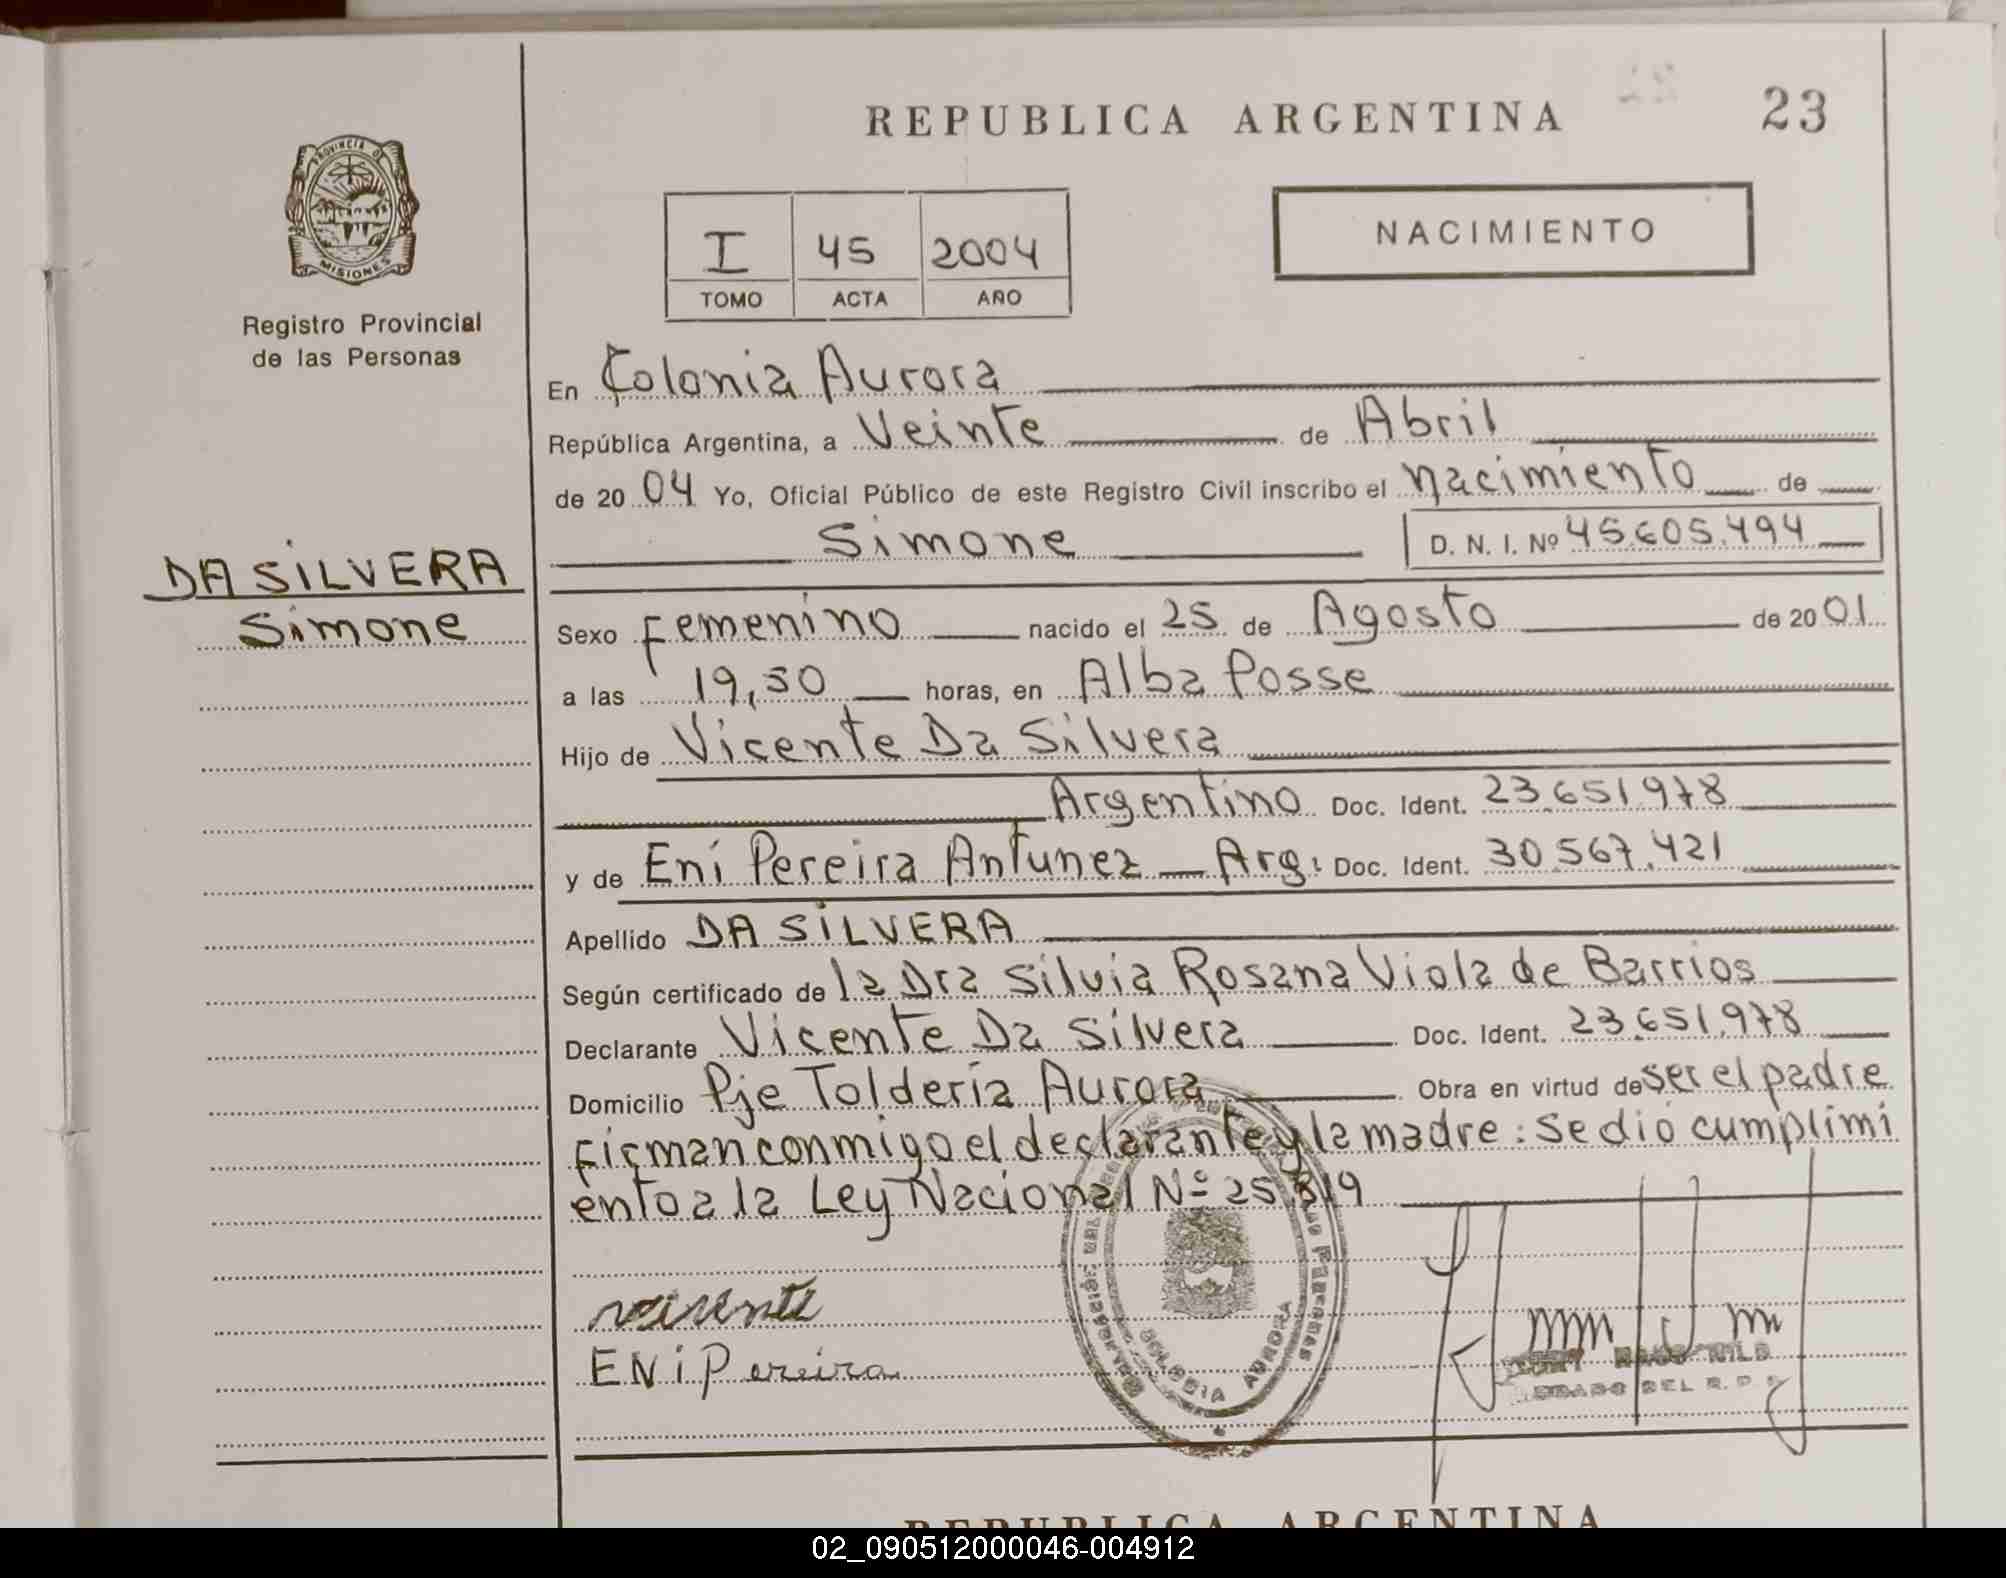 REPUBLICA ARGENTINA
23
PROVINCIA DE
MISIONES
Registro Provincial
de las Personas
I 45 2004
TOMO ACTA AÑO
NACIMIENTO
En Colonia Aurora
República Argentina, a Veinte de Abril
de 2004 Yo, Oficial Público de este Registro Civil inscribo el nacimiento de
Simone D. N. I. Nº 45.605.494
DA SILVERA
Simone
Sexo Femenino nacido el 25 de Agosto de 2001
a las 19,30 horas, en Alba Posse
Hijo de Vicente Da Silvera
Argentino Doc. Ident. 23.651.978
y de Ení Pereira Antunez Arg: Doc. Ident. 30.567.421
Apellido DA SILVERA
Según certificado de la Dra Silvia Rosana Viola de Barrios
Declarante Vicente Da Silvera Doc. Ident. 23.651.978
Domicilio Pje Toldería Aurora Obra en virtud de ser el padre
firman conmigo el declarante y la madre: se dió cumplimi
ento a la Ley Nacional Nº 25.819
COLONIA AURORA
ENi Pereira
DEL R. P.
REPUBLICA ARGENTINA
02_090512000046-004912